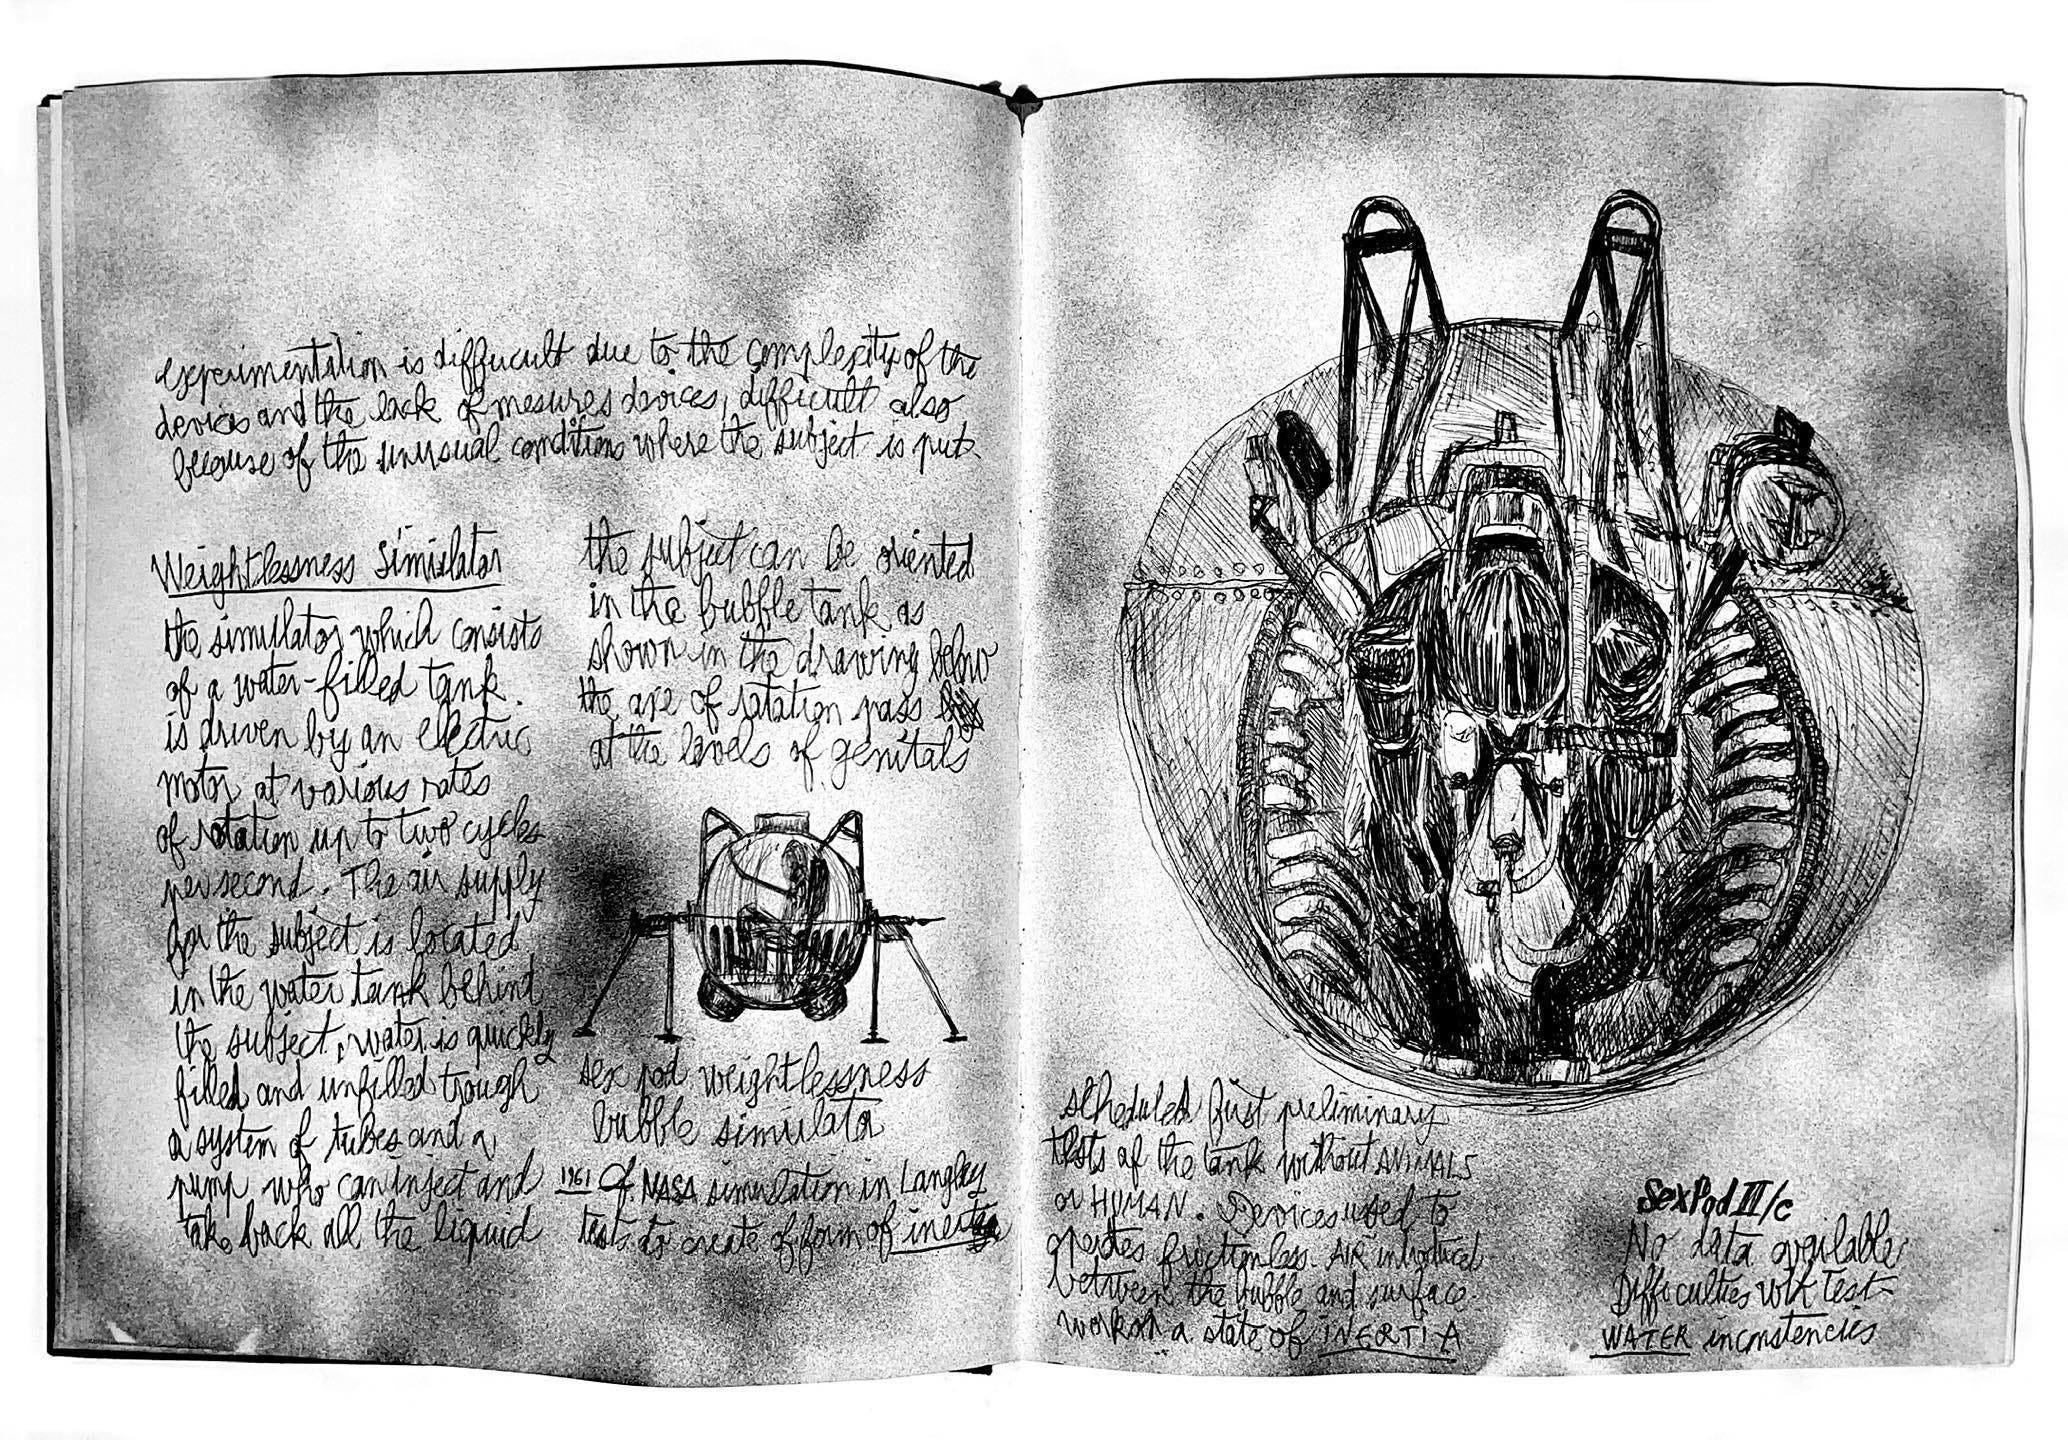 experimentation is difficult due to the complexity of the
devices and the lack of mesures devices, difficult also
because of the unusual conditions where the subject is put.
Weightlessness Simulator
the simulator which consists
of a water-filled tank
is driven by an electric
motor at various rates
of rotation up to two cycles
per second. The air supply
for the subject is located
in the water tank behind
the subject, water is quickly
filled and unfilled trough
a system of tubes and a
pump who can inject and
take back all the liquid
the subject can be oriented
in the bubble tank as
shown in the drawing below
the axe of rotation pass
at the levels of genitals
sex pod weightlessness
bubble simulator
1961 Cf. NASA simulation in Langley
tests to create of form of inertia
scheduled first preliminary
tests of the tank without ANIMALS
or HUMAN. Devices used to
operates frictionless. AIR introduced
between the bubble and surface
work on a state of INERTIA
SexPod II/c
No data available
Difficulties with test-
WATER inconstencies